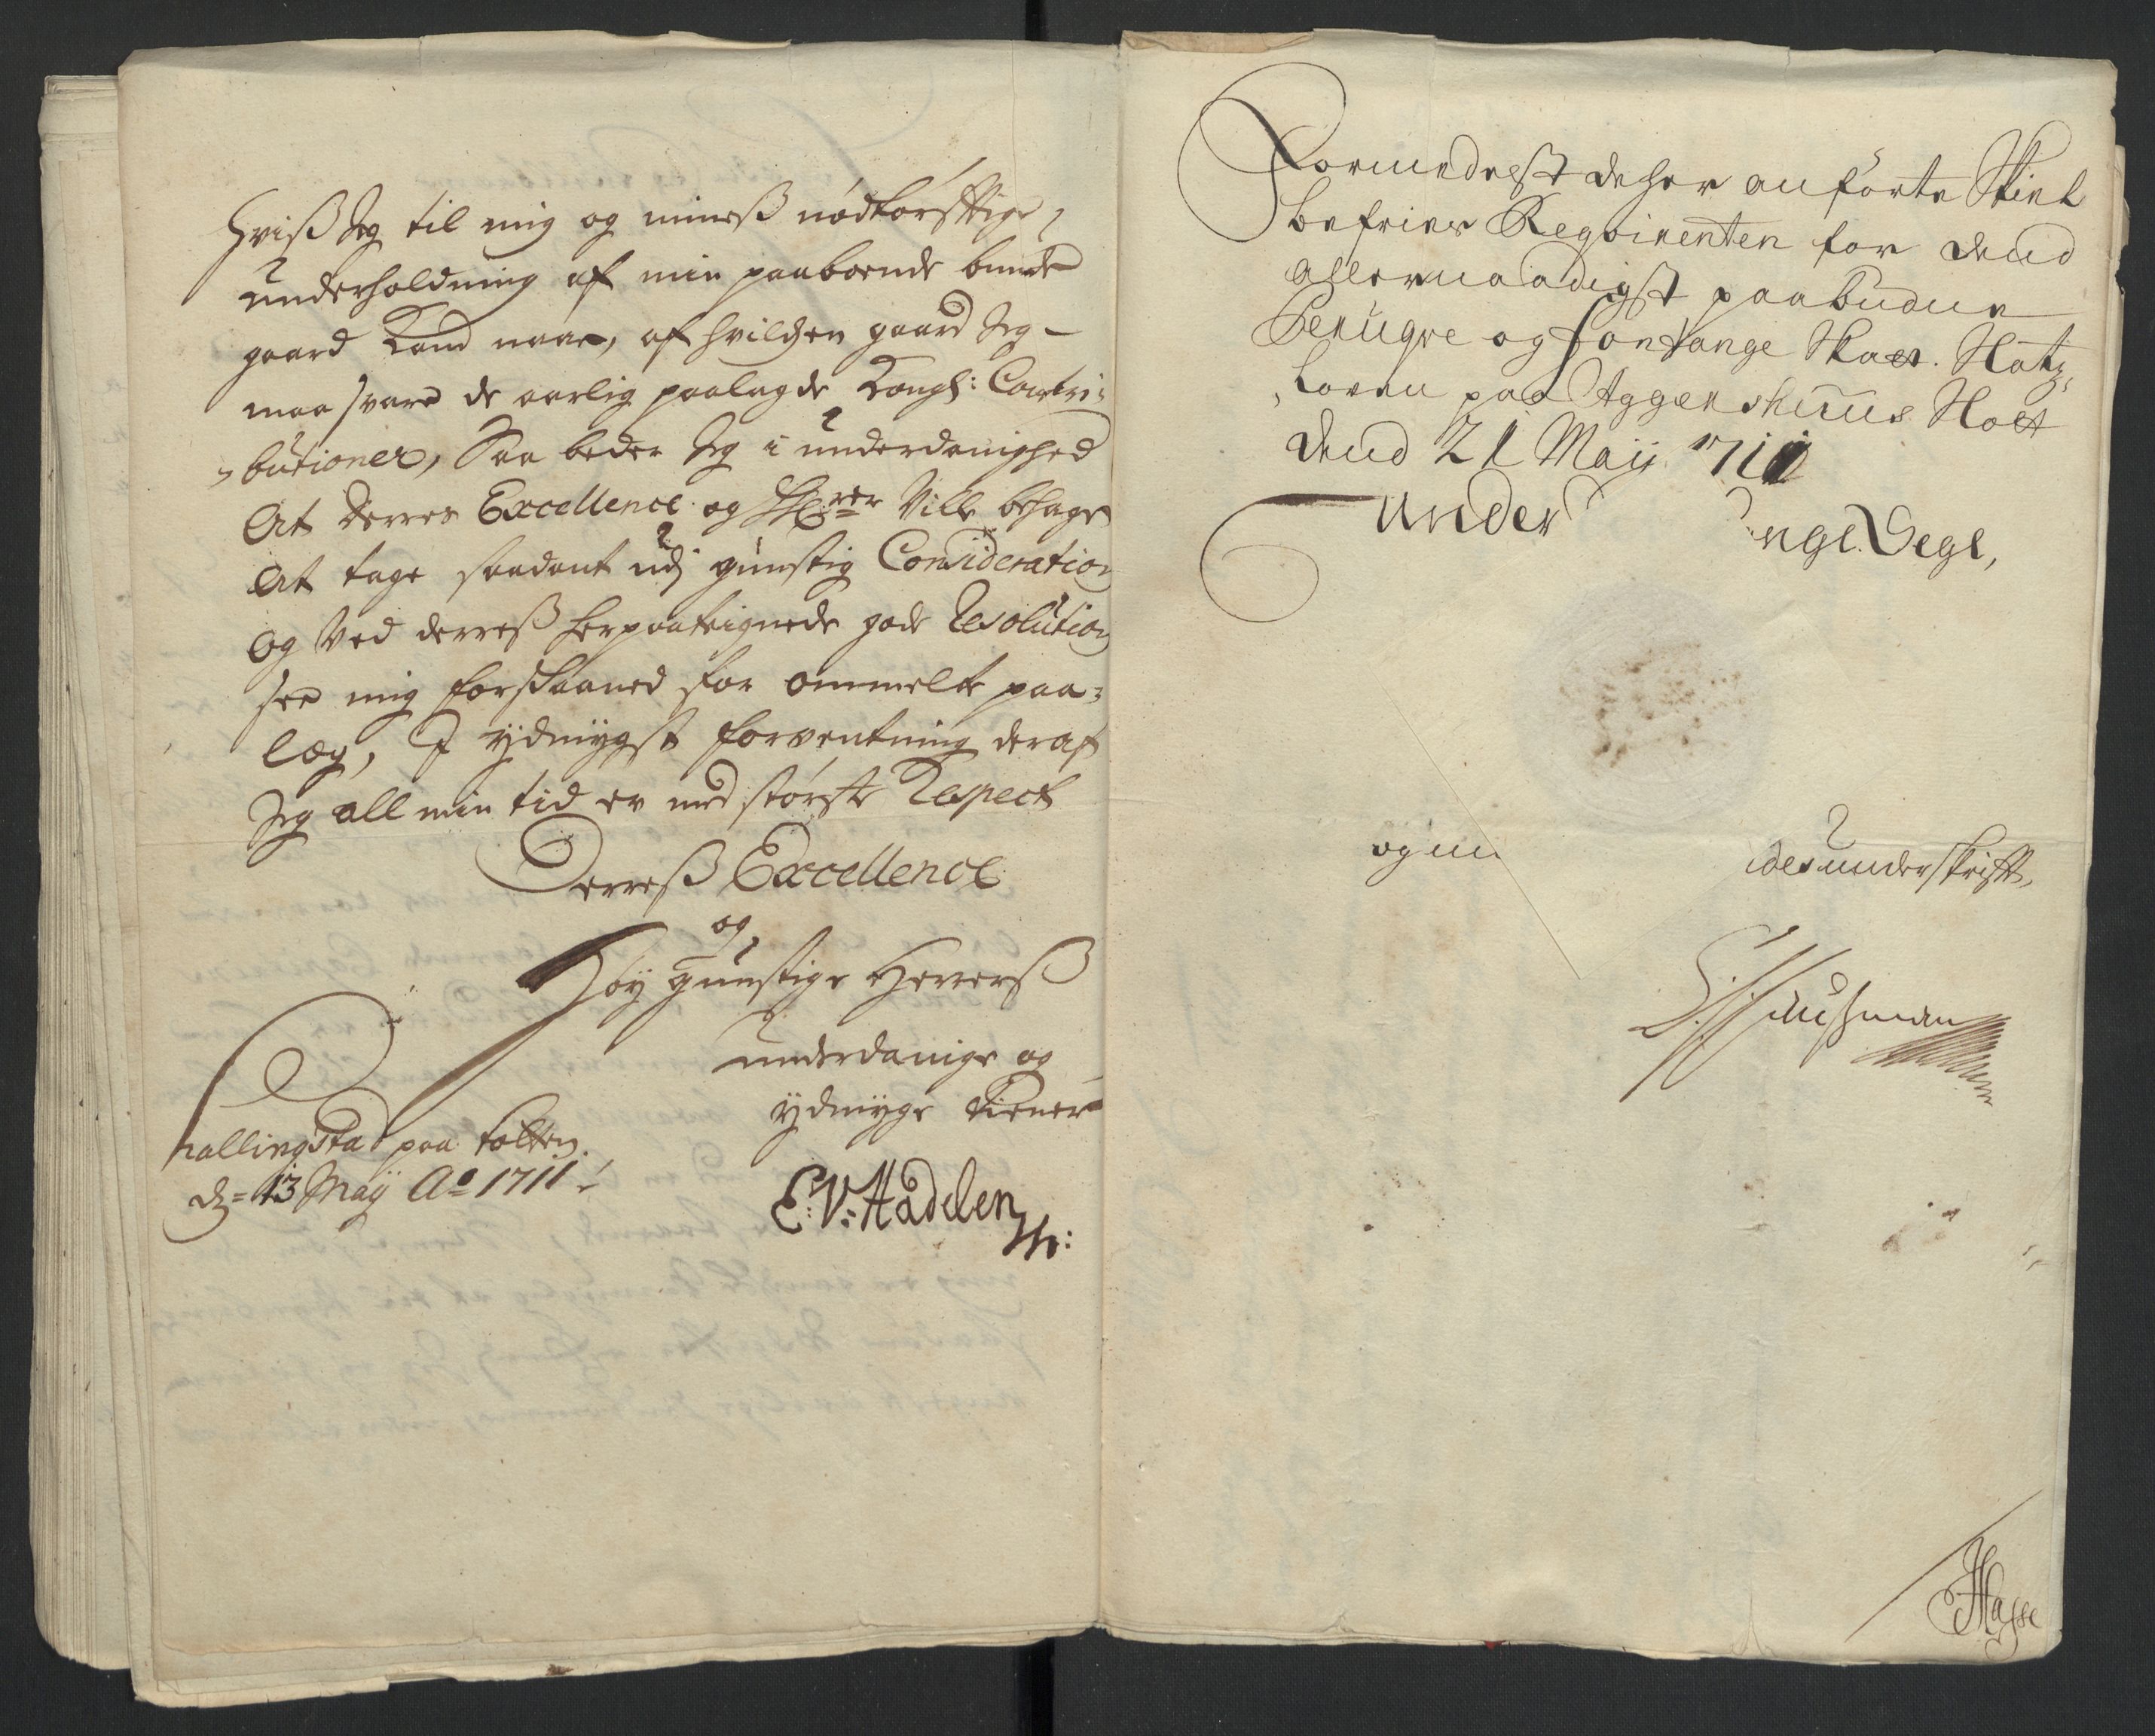 hviß Jeg til mig og mineß nødtørfftige
underholdning af min paaboende bunde
gaard Kand naae, af hvilchen gaard Jeg
maa svare de aarlig paalagde Kongl: Contri-
butioner, Saa beder Jeg i underdanighed
At Derres Excellence og Hrer Ville behage
At tage saadant udj gunstig Consideration
og Ved derreß herpaateignede gode Resolution
see mig forskaaned for ommelte paa-
læg, J ydmygst forventning deraf
Jeg all min tid er med største Respect
Derreß Excellence
og
Høy gunstige Herrerß
underdanige og
ydmyge tiener
hallingsta paa totten
d= 13 May Ao 1711
E: V: Hadelen
Formedelst de her anførte Skiel
befries Reqvirenten for dend
allernaadigst paabudne
Peruqve og fontange Skatt. Slotz
Loven paa Aggershuus Slott
dend 21 Maij 1711
under ngl. Segl,
og underskrifft,
Hasse